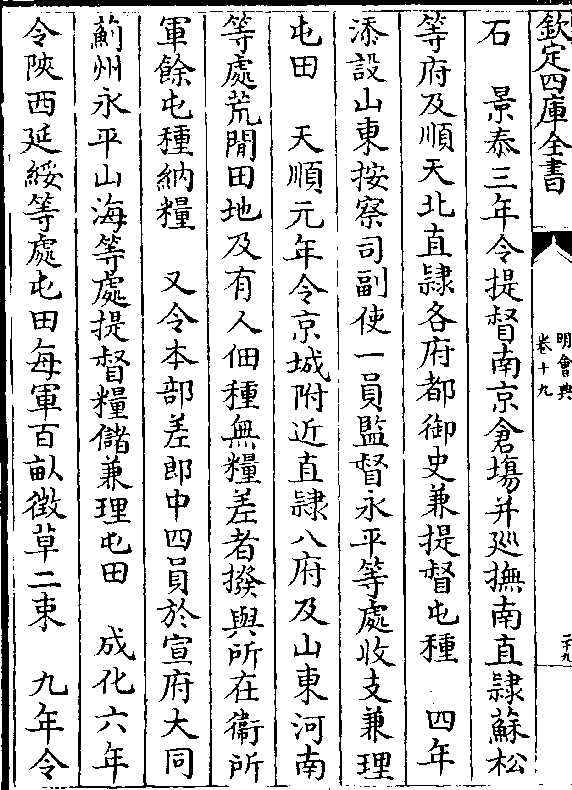 欽定四庫全書
明會典
卷十九
二十九
石　景泰三年令提督南京倉塲并廵撫南直隸蘇松
等府及順天北直隸各府都御史兼提督屯種　四年
添設山東按察司副使一員監督永平等處收支兼理
屯田　天順元年令京城附近直隸八府及山東河南
等處荒閒田地及有人佃種無糧差者撥與所在衞所
軍餘屯種納糧　又令本部差郎中四員於宣府大同
薊州永平山海等處提督糧儲兼理屯田　成化六年
令陜西延綏等處屯田每軍百畝徵草二束　九年令